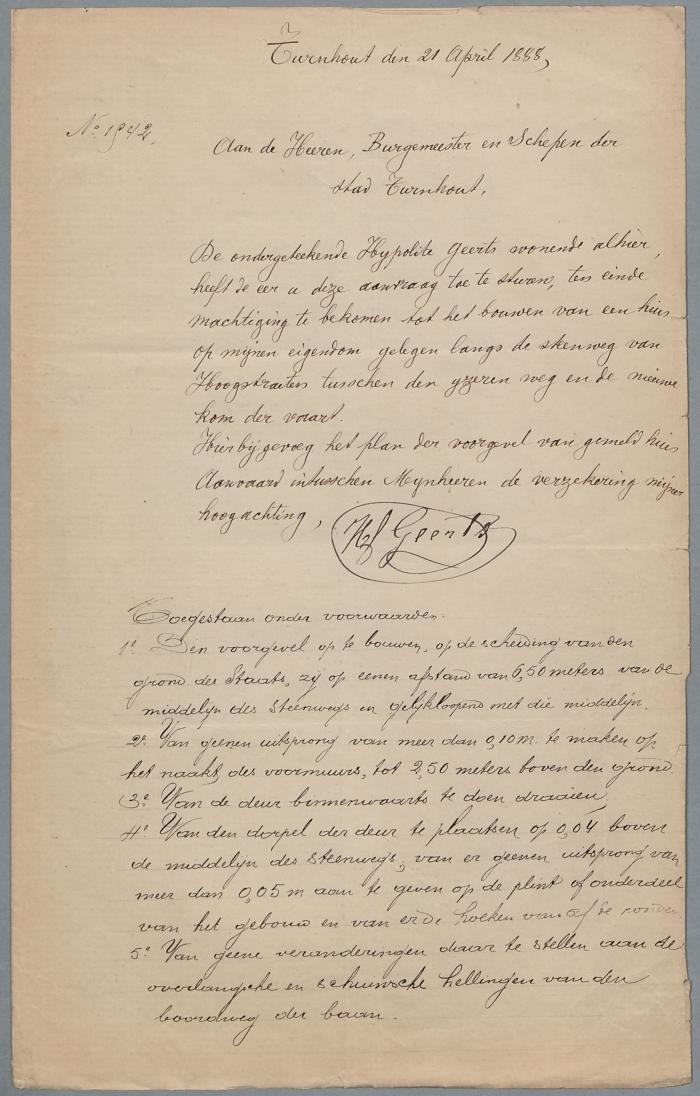 Turnhout den 21 April 1888,
No. 1942.
Aan de Heeren, Burgemeester en Schepen der
stad Turnhout,
De ondergeteekende Hypolite Geerts wonende alhier,
heeft de eer u deze aanvraag toe te sturen, ten einde
machtiging te bekomen tot het bouwen van een huis
op mijnen eigendom gelegen langs de steenweg van
Hoogstraeten tusschen den yzeren weg en de nieuwe
kom der vaart.
Hierbijgevoeg het plan der voorgevel van gemeld huis
Aanvaard intusschen Mynheeren de verzekering mijner
hoogachting,
Hy Geerts
Toegestaan onder voorwaarden.
1e Den voorgevel op te bouwen, op de scheiding van den
grond des Staats, zij op eenen afstand van 6,50 meters van de
middelijn des steenwegs en gelijkloopend met die middelijn.
2e Van geenen uitsprong van meer dan 0,10 m. te maken op
het naakt des voormuurs, tot 2,50 meters boven den grond
3e Van de deur binnenwaarts te doen draaien.
4e Van den dorpel der deur te plaatsen op 0,04 boven
de middelijn des steenwegs, van er geenen uitsprong van
meer dan 0,05 m aan te geven op de plint of onderdeel
van het gebouw en van er de hoeken van af te ronden
5e Van geene veranderingen daar te stellen aan de
overlangsche en schuinsche hellingen van den
boordweg der baan.